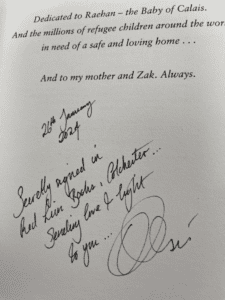 Dedicated to Raehan – the Baby of Calais.
And the millions of refugee children around the wor
in need of a safe and loving home . . .
And to my mother and Zak. Always.
26th January
2024
Secretly signed in
Red Lion Books, Colchester...
Sending love & light
to you ...